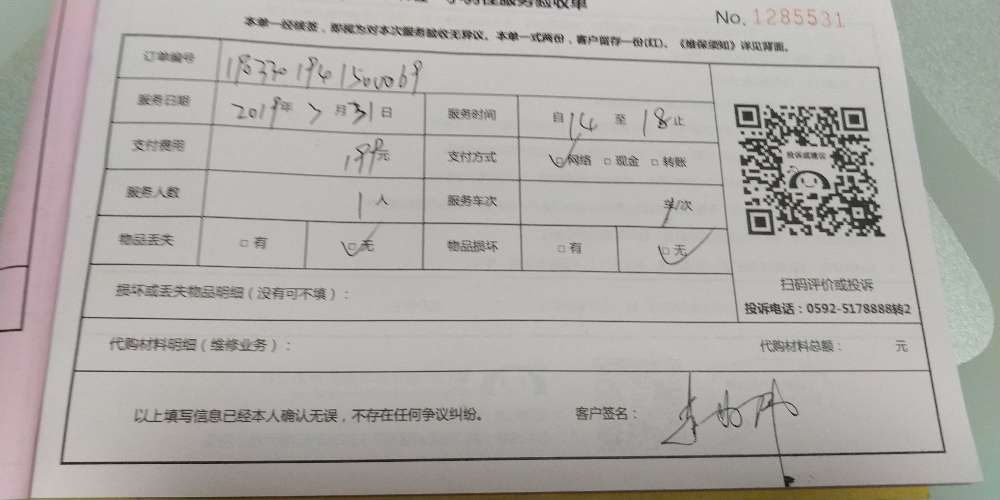 服务验收单
No. 1285531
本单一经核签，即视为对本次服务验收无异议。本单一式两份，客户留存一份(红)。《维保须知》详见背面。
订单编号
服务日期 2019年 7月31日 服务时间 自14 至 18止
支付费用 199元 支付方式 □网络 □现金 □转账
服务人数 1人 服务车次 车/次
物品丢失 □有 □无 物品损坏 □有 □无
投诉或建议
扫码评价或投诉
投诉电话：0592-5178888转2
损坏或丢失物品明细（没有可不填）：
代购材料明细（维修业务）： 代购材料总额： 元
以上填写信息已经本人确认无误，不存在任何争议纠纷。 客户签名：